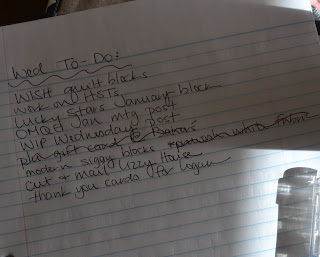 Wed To-Do:
WISH quilt blocks
Work on HSTs
Lucky Stars January block
OMQG Jan mtg post
WIP Wednesday post
gift card @
modern siggy blocks
cut & mail Lizzy House
thank you cards for Logan